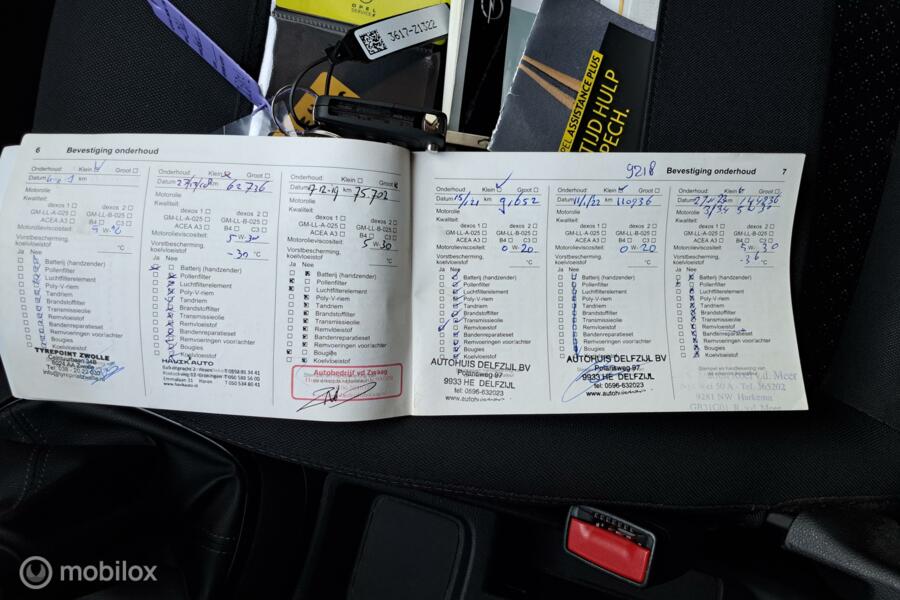 OPEL
SERVICE
3617-Z1322
OPEL ASSISTANCE PLUS
TIJD HULP
PECH.
6 Bevestiging onderhoud
Onderhoud: Klein Groot
Datum km
Motorolie
Kwaliteit:
dexos 1 dexos 2
GM-LL-A-025 GM-LL-B-025
ACEA A3 B4 C3
Motorolieviscositeit: W-
Vorstbescherming,
koelvloeistof °C
Ja Nee
Batterij (handzender)
Pollenfilter
Luchtfilterelement
Poly-V-riem
Tandriem
Brandstoffilter
Transmissieolie
Remvloeistof
Bandenreparatieset
Remvoeringen voor/achter
Bougies
Koelvloeistof
TYREPOINT ZWOLLE
Onderhoud: Klein Groot
Datum km 62736
Motorolie
Kwaliteit:
dexos 1 dexos 2
GM-LL-A-025 GM-LL-B-025
ACEA A3 B4 C3
Motorolieviscositeit: 5 W-30
Vorstbescherming,
koelvloeistof -30 °C
Ja Nee
Batterij (handzender)
Pollenfilter
Luchtfilterelement
Poly-V-riem
Tandriem
Brandstoffilter
Transmissieolie
Remvloeistof
Bandenreparatieset
Remvoeringen voor/achter
Bougies
Koelvloeistof
HAVIK AUTO
www.havikauto.nl
Onderhoud: Klein Groot
Datum 7-12-19 km 75.702
Motorolie
Kwaliteit:
dexos 1 dexos 2
GM-LL-A-025 GM-LL-B-025
ACEA A3 B4 C3
Motorolieviscositeit: 5 W-30
Vorstbescherming,
koelvloeistof °C
Ja Nee
Batterij (handzender)
Pollenfilter
Luchtfilterelement
Poly-V-riem
Tandriem
Brandstoffilter
Transmissieolie
Remvloeistof
Bandenreparatieset
Remvoeringen voor/achter
Bougies
Koelvloeistof
Autobedrijf vd Zwaag
9218 Bevestiging onderhoud 7
Onderhoud: Klein Groot
Datum km 91652
Motorolie
Kwaliteit:
dexos 1 dexos 2
GM-LL-A-025 GM-LL-B-025
ACEA A3 B4 C3
Motorolieviscositeit: 0 W-20
Vorstbescherming,
koelvloeistof °C
Ja Nee
Batterij (handzender)
Pollenfilter
Luchtfilterelement
Poly-V-riem
Tandriem
Brandstoffilter
Transmissieolie
Remvloeistof
Bandenreparatieset
Remvoeringen voor/achter
Bougies
Koelvloeistof
AUTOHUIS DELFZIJL BV
Polarisweg 97
9933 HE DELFZIJL
tel: 0596-632023
Onderhoud: Klein Groot
Datum km 110936
Motorolie
Kwaliteit:
dexos 1 dexos 2
GM-LL-A-025 GM-LL-B-025
ACEA A3 B4 C3
Motorolieviscositeit: 0 W-20
Vorstbescherming,
koelvloeistof °C
Ja Nee
Batterij (handzender)
Pollenfilter
Luchtfilterelement
Poly-V-riem
Tandriem
Brandstoffilter
Transmissieolie
Remvloeistof
Bandenreparatieset
Remvoeringen voor/achter
Bougies
Koelvloeistof
AUTOHUIS DELFZIJL BV
Polarisweg 97
9933 HE DELFZIJL
tel: 0596-632023
Onderhoud: Klein Groot
Datum km
Motorolie
Kwaliteit:
dexos 1 dexos 2
GM-LL-A-025 GM-LL-B-025
ACEA A3 B4 C3
Motorolieviscositeit: 5 W-30
Vorstbescherming,
koelvloeistof °C
Ja Nee
Batterij (handzender)
Pollenfilter
Luchtfilterelement
Poly-V-riem
Tandriem
Brandstoffilter
Transmissieolie
Remvloeistof
Bandenreparatieset
Remvoeringen voor/achter
Bougies
Koelvloeistof
v.d. Meer
50 A - Tel. 365202
9281 NW Harkema
mobilox